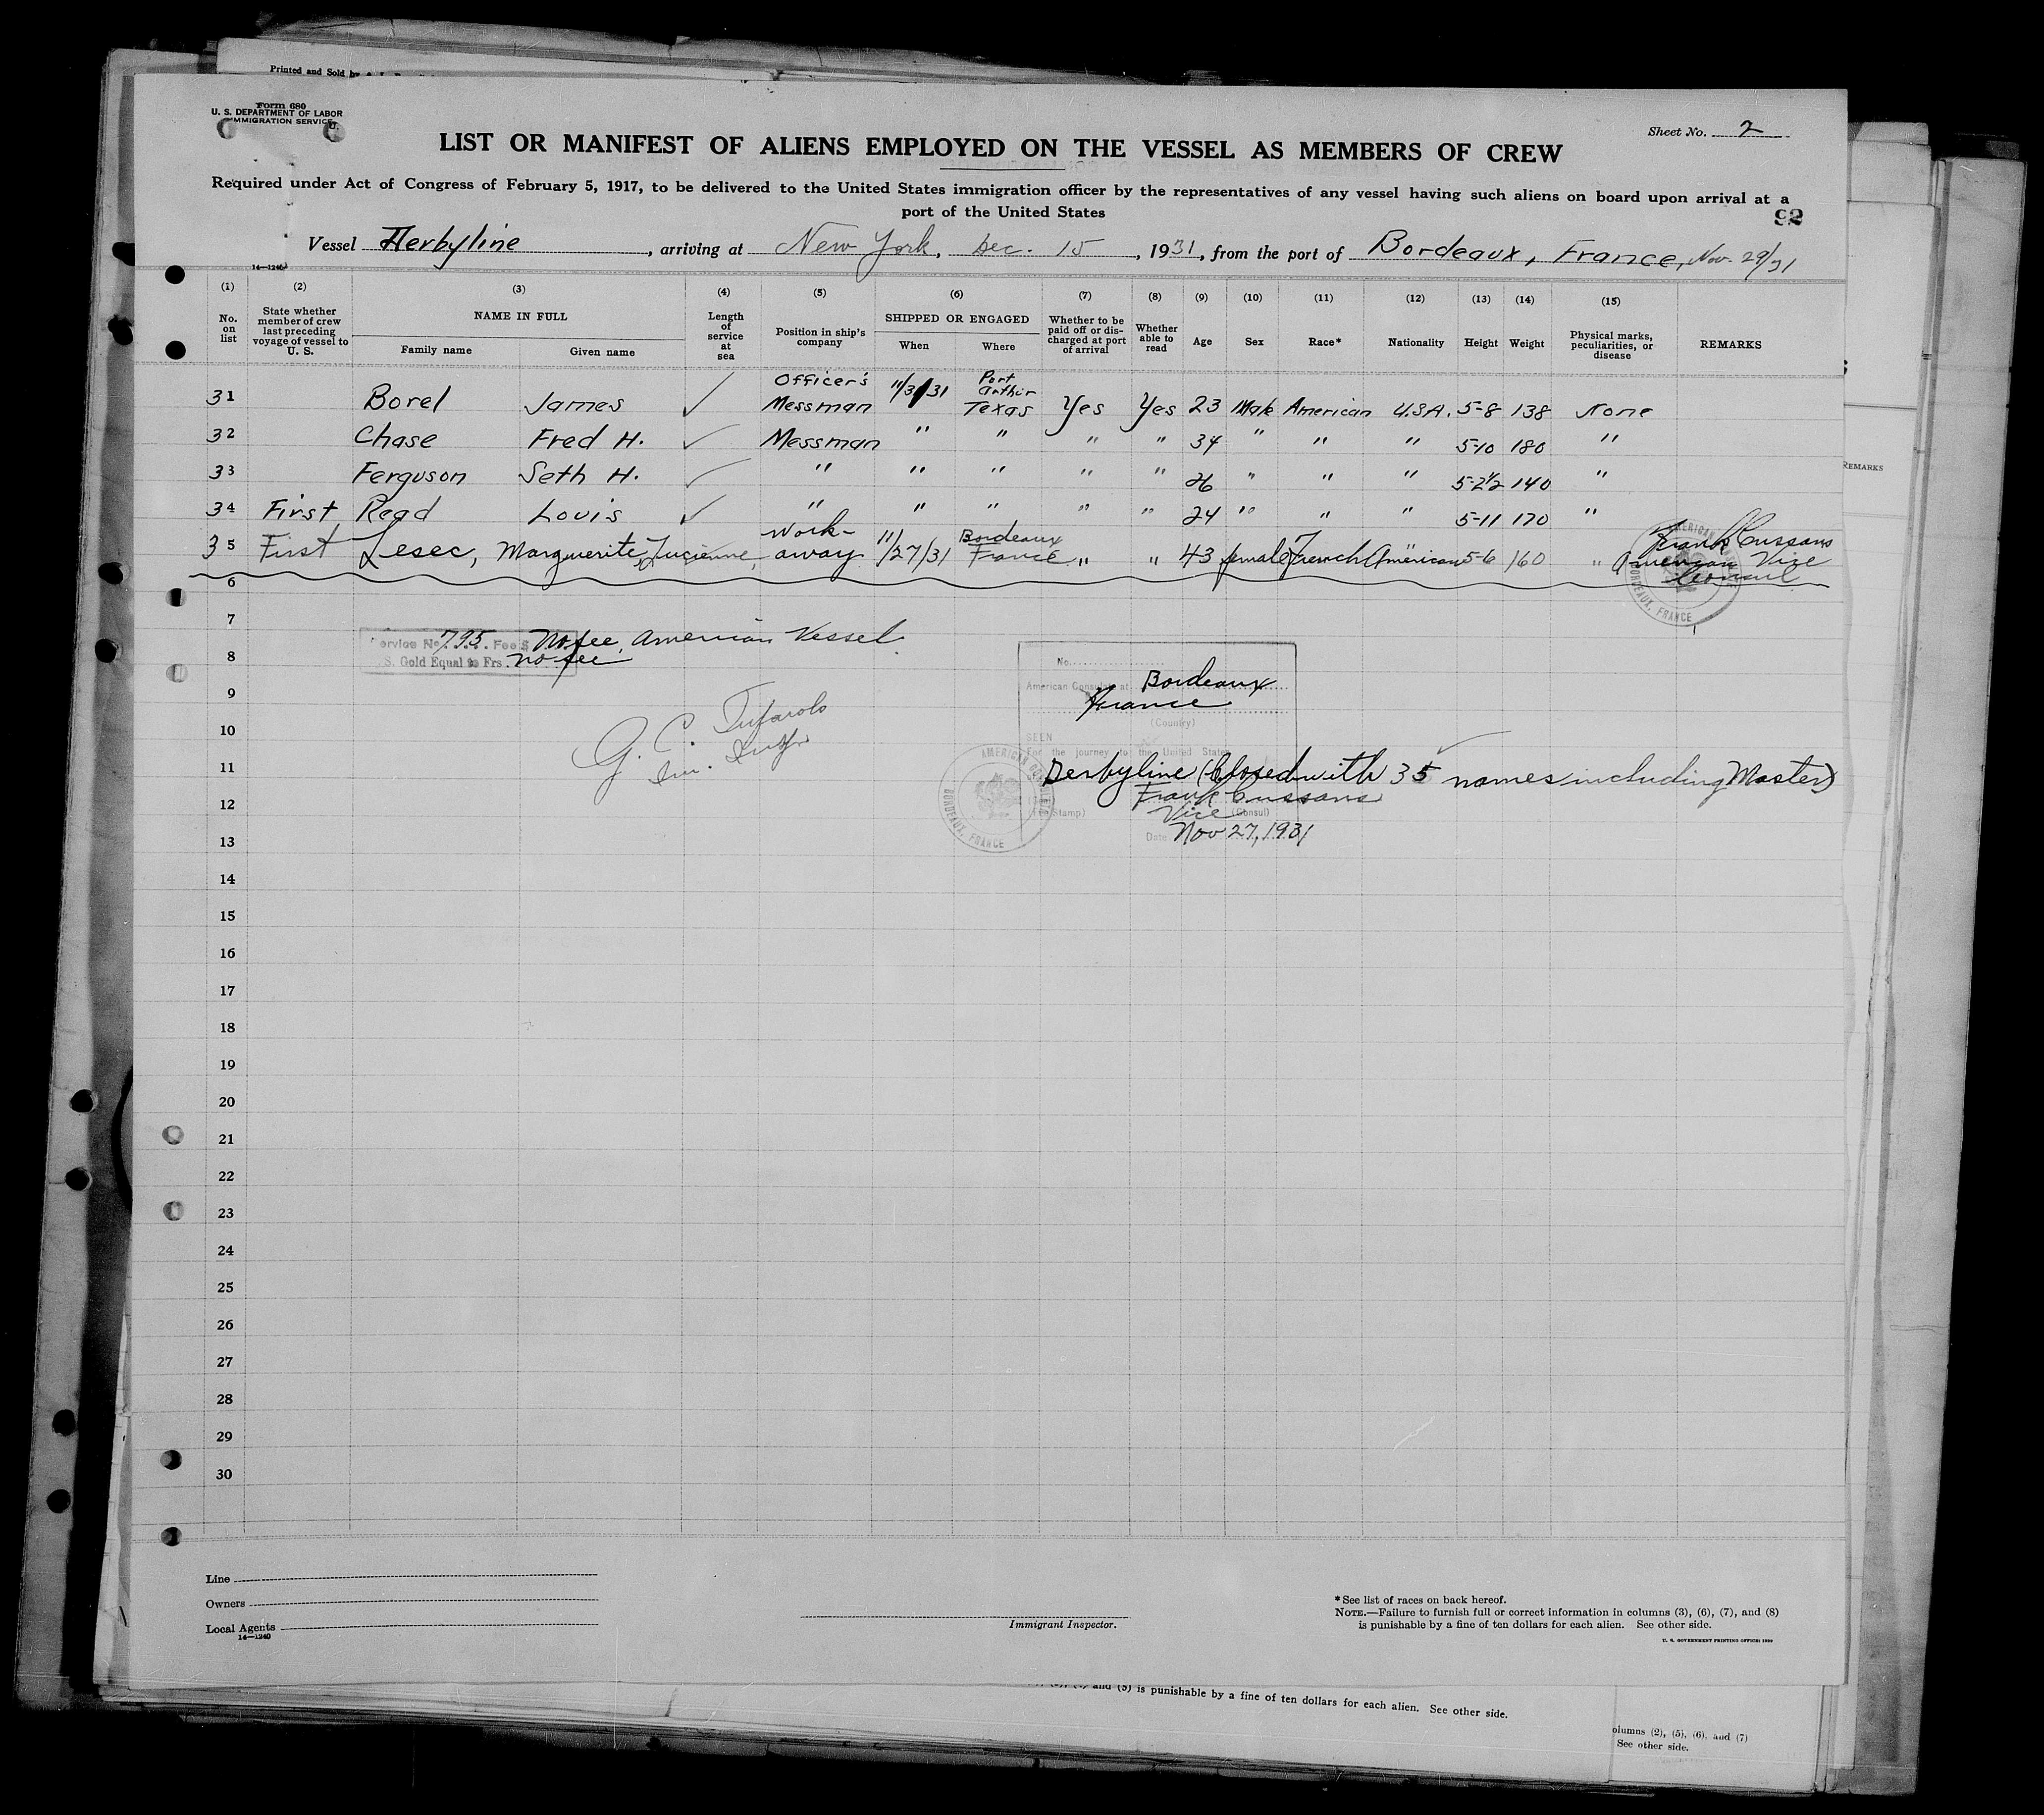 Printed and Sold by
Form 680
U. S. DEPARTMENT OF LABOR
IMMIGRATION SERVICE
Sheet No. 2
LIST OR MANIFEST OF ALIENS EMPLOYED ON THE VESSEL AS MEMBERS OF CREW
Required under Act of Congress of February 5, 1917, to be delivered to the United States immigration officer by the representatives of any vessel having such aliens on board upon arrival at a
port of the United States
92
Vessel Derbyline, arriving at New York, Dec. 15, 1931, from the port of Bordeaux, France, Nov. 29/31
14—1240
(1) (2) (3) (4) (5) (6) (7) (8) (9) (10) (11) (12) (13) (14) (15)
No. on list
State whether member of crew last preceding voyage of vessel to U. S.
NAME IN FULL
Family name
Given name
Length of service at sea
Position in ship's company
SHIPPED OR ENGAGED
When
Where
Whether to be paid off or discharged at port of arrival
Whether able to read
Age
Sex
Race*
Nationality
Height
Weight
Physical marks, peculiarities, or disease
REMARKS
31 Borel James ✓ Officer's Messman 11/3/31 Port Arthur Texas Yes Yes 23 Male American U.S.A. 5-8 138 None
32 Chase Fred H. ✓ Messman " " " " 34 " " " 5-10 180 "
33 Ferguson Seth H. ✓ " " " " " 26 " " " 5-2½ 140 "
34 First Read Louis ✓ " " " " " 24 " " " 5-11 170 "
35 First Lesec, Marguerite Lucienne, Work-away 11/27/31 Bordeaux France " " 43 female French American 5-6 160 "
Frank Cussans
American Vice
Consul
AMERICAN
BORDEAUX, FRANCE
6
7
Service No. 795. Fee $ No fee, American Vessel.
8
U.S. Gold Equal to Frs. no fee
No.
American Consulate at Bordeaux
9
France
(Country)
G. C. Tufarolo
10
SEEN
For the journey to the United States
11
Derbyline (Closed with 35 names including Master)
12
Frank Cussans
Vice (Consul)
(Fee Stamp)
AMERICAN CONSULATE
BORDEAUX, FRANCE
Date Nov 27, 1931
13
14
15
16
17
18
19
20
21
22
23
24
25
26
27
28
29
30
Line
Owners
Local Agents
14—1240
Immigrant Inspector.
*See list of races on back hereof.
NOTE.—Failure to furnish full or correct information in columns (3), (6), (7), and (8)
is punishable by a fine of ten dollars for each alien. See other side.
U. S. GOVERNMENT PRINTING OFFICE:
and (8) is punishable by a fine of ten dollars for each alien. See other side.
olumns (2), (5), (6), and (7)
See other side.
REMARKS